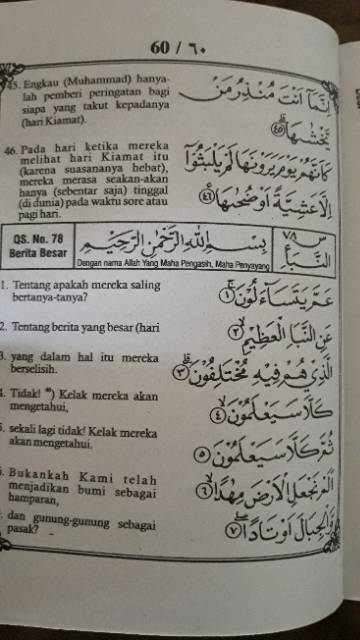 60 / ٦٠
45. Engkau (Muhammad) hanya-
lah pemberi peringatan bagi
siapa yang takut kepadanya
(hari Kiamat).
إِنَّمَا أَنْتَ مُنْذِرُ مَنْ
يَخْشٰىهَا ﴿٤٥﴾
46. Pada hari ketika mereka
melihat hari Kiamat itu
(karena suasananya hebat),
mereka merasa seakan-akan
hanya (sebentar saja) tinggal
(di dunia) pada waktu sore atau
pagi hari.
كَاَنَّهُمْ يَوْمَ يَرَوْنَهَا لَمْ يَلْبَثُوْٓا
اِلَّا عَشِيَّةً اَوْ ضُحٰىهَا ﴿٤٦﴾
QS. No. 78
Berita Besar
بِسْمِ اللّٰهِ الرَّحْمٰنِ الرَّحِيْمِ
Dengan nama Allah Yang Maha Pengasih, Maha Penyayang
س ٧٨
النَّبَأ
1. Tentang apakah mereka saling
bertanya-tanya?
عَمَّ يَتَسَاۤءَلُوْنَ ﴿١﴾
2. Tentang berita yang besar (hari
عَنِ النَّبَاِ الْعَظِيْمِ ﴿٢﴾
3. yang dalam hal itu mereka
berselisih.
الَّذِيْ هُمْ فِيْهِ مُخْتَلِفُوْنَ ﴿٣﴾
4. Tidak! *) Kelak mereka akan
mengetahui,
كَلَّا سَيَعْلَمُوْنَ ﴿٤﴾
5. sekali lagi tidak! Kelak mereka
akan mengetahui.
ثُمَّ كَلَّا سَيَعْلَمُوْنَ ﴿٥﴾
. Bukankah Kami telah
menjadikan bumi sebagai
hamparan,
اَلَمْ نَجْعَلِ الْاَرْضَ مِهٰدًا ﴿٦﴾
. dan gunung-gunung sebagai
pasak?
وَّالْجِبَالَ اَوْتَادًا ﴿٧﴾